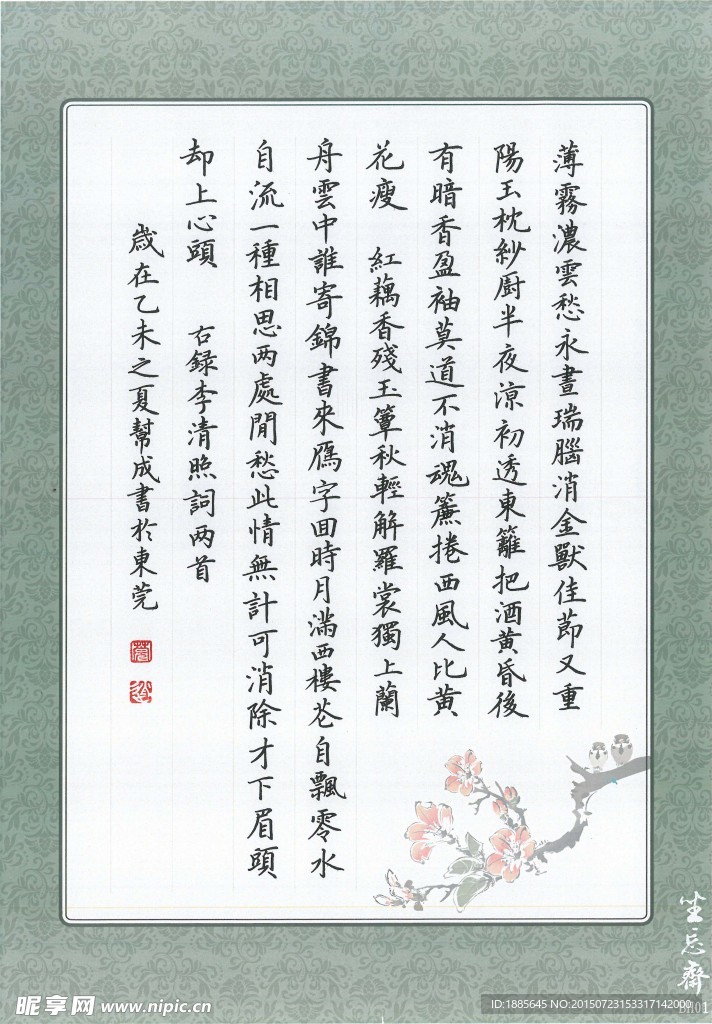 薄霧濃雲愁永晝瑞腦消金獸佳節又重
陽玉枕紗厨半夜涼初透東籬把酒黄昏後
有暗香盈袖莫道不消魂簾捲西風人比黄
花瘦　紅藕香殘玉簟秋輕解羅裳獨上蘭
舟雲中誰寄錦書來雁字回時月滿西樓花自飄零水
自流一種相思两處閒愁此情無計可消除才下眉頭
却上心頭　右録李清照詞两首
歲在乙未之夏幫成書於東莞
坐忘齋
BH01
昵享网 www.nipic.cn
ID:1885645 NO:20150723153317142000